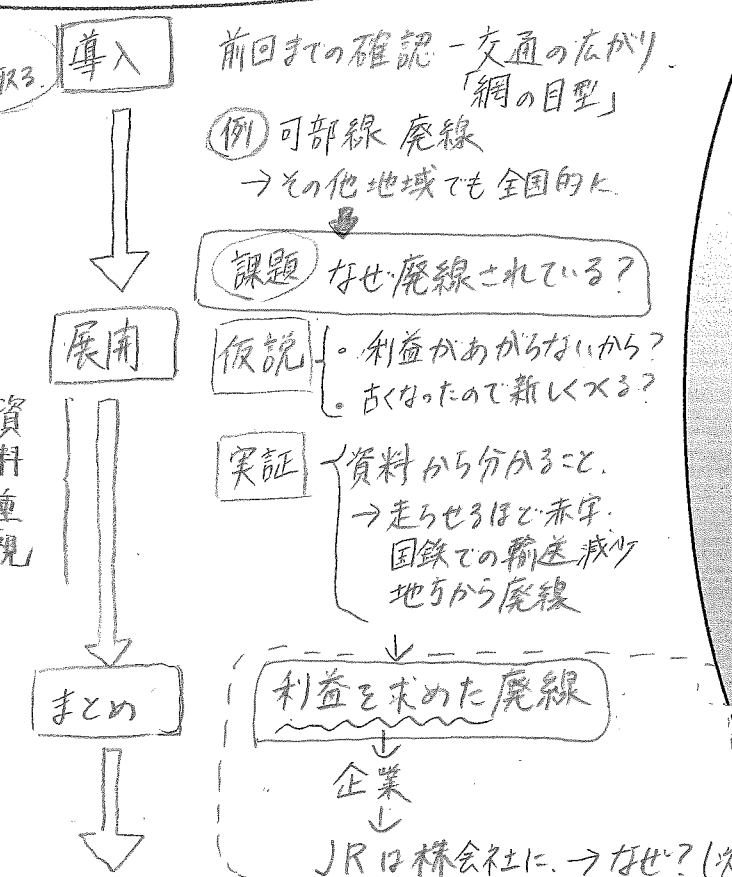 導入
前回までの確認 - 交通の広がり
「網の目型」
例 可部線 廃線
→その他地域でも全国的に
課題 なぜ廃線されている?
展開
仮説
・利益があがらないから?
・古くなったので新しくつくる?
資料重視
実証
資料から分かること.
→走らせるほど赤字.
国鉄での輸送減少
地方から廃線
まとめ
利益を求めた廃線
↓
企業
↓
JRは株会社に.→なぜ?(次